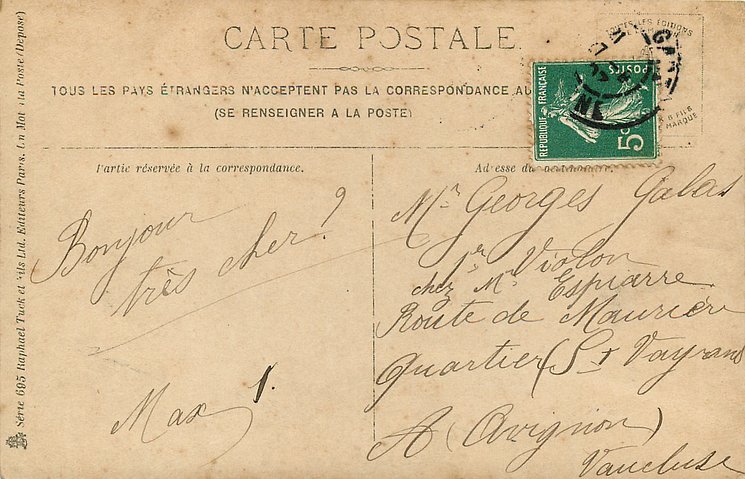 CARTE POSTALE
TOUS LES PAYS ÉTRANGERS N'ACCEPTENT PAS LA CORRESPONDANCE AU
(SE RENSEIGNER A LA POSTE)
RÉPUBLIQUE FRANÇAISE
POSTES
5c
Partie réservée à la correspondance.
Bonjour
très cher?
Max
Adresse du
Mr Georges Galas
1er Violon
chez Mr Espiarre
Route de
Quartier (St
A (Avignon)
Vaucluse
Série 695 Raphael Tuck et Fils Ltd. Editeurs Paris.